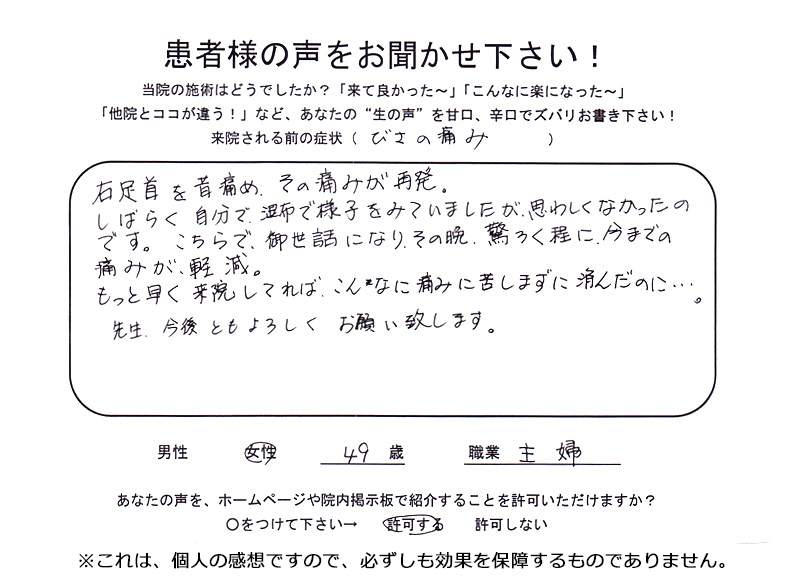 患者様の声をお聞かせ下さい！
当院の施術はどうでしたか？「来て良かった～」「こんなに楽になった～」
「他院とココが違う！」など、あなたの“生の声”を甘口、辛口でズバリお書き下さい！
来院される前の症状（ ひざの痛み ）
右足首を昔痛め、その痛みが再発。
しばらく自分で、湿布で様子をみていましたが、思わしくなかったの
です。こちらで、御世話になり、その晩、驚ろく程に、今までの
痛みが、軽減。
もっと早く来院してれば、こんなに痛みに苦しまずに済んだのに…。
先生、今後ともよろしくお願い致します。
男性 女性 49 歳 職業 主婦
あなたの声を、ホームページや院内掲示板で紹介することを許可いただけますか？
〇をつけて下さい→ 許可する 許可しない
※これは、個人の感想ですので、必ずしも効果を保障するものでありません。